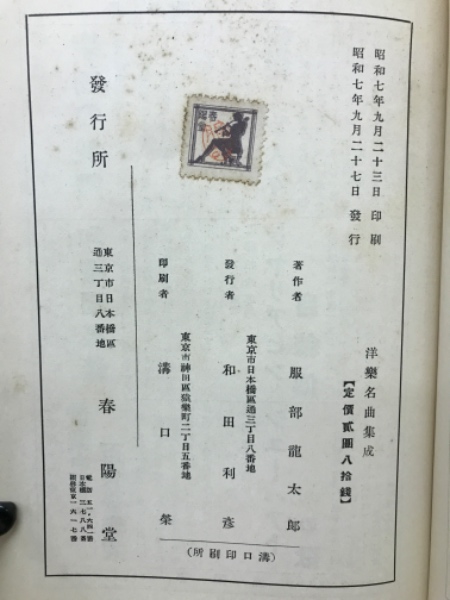 昭和七年九月二十三日 印刷
昭和七年九月二十七日 發行
洋樂名曲集成
【定價貳圓八拾錢】
著作者 服部龍太郎
東京市日本橋區通三丁目八番地
發行者 和田利彥
東京市神田區猿樂町二丁目五番地
印刷者 溝口榮
(溝口印刷所)
春陽堂
發行所
東京市日本橋區
通三丁目八番地
春陽堂